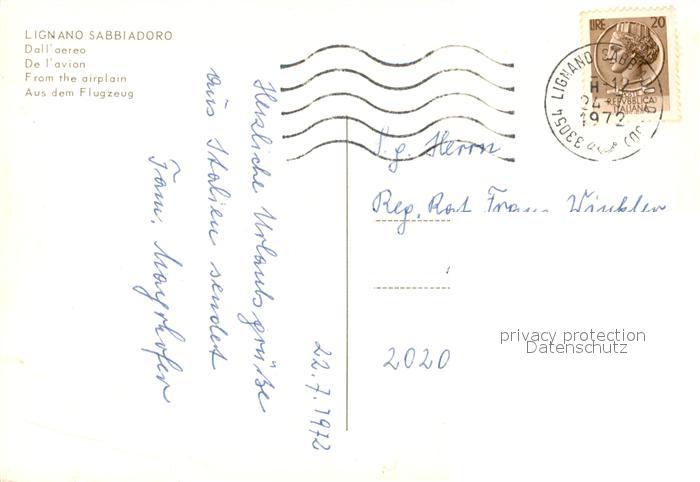 LIGNANO SABBIADORO
Dall'aereo
De l'avion
From the airplain
Aus dem Flugzeug
Herzliche Urlaubsgrüße
aus Italien sendet
Fam. Mayrhofer
22.7.1972
LIRE 20
REPVBBLICA
ITALIANA
33054 LIGNANO SABB
24
1972
S.g. Herrn
Reg. Rat Franz Winkler
2020
privacy protection
Datenschutz